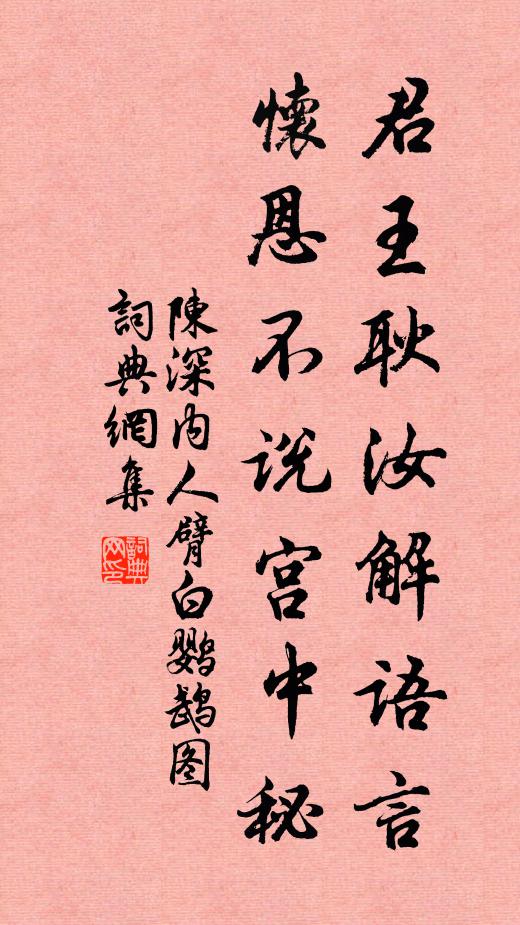 君王耿汝解语言
懷恩不说宫中秘
陳深内人臂白鹦鹉图
詞典網集
詞典网印